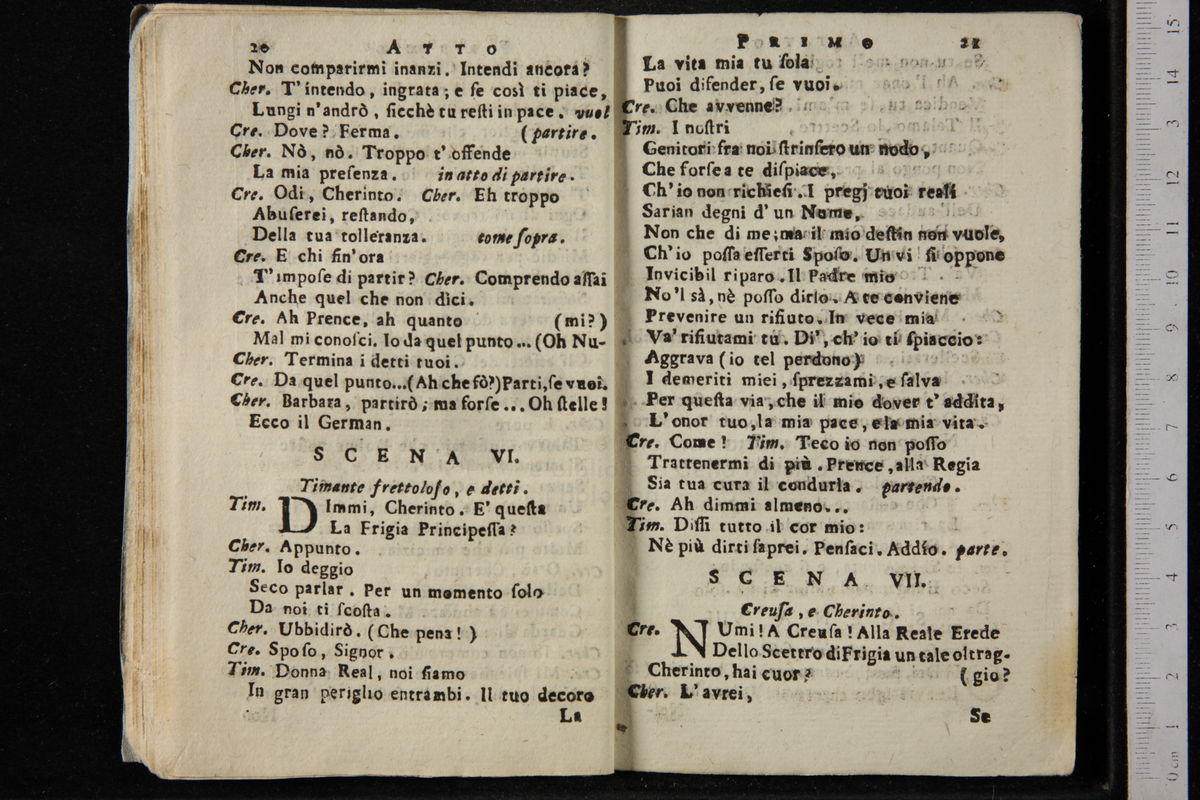 20 ATTO
Non comparirmi inanzi. Intendi ancora?
Cher. T'intendo, ingrata; e ſe così ti piace,
Lungi n'andrò, ſicchè tu reſti in pace. vuol
Cre. Dove? Ferma. (partire.
Cher. Nò, nò. Troppo t'offende
La mia preſenza. in atto di partire.
Cre. Odi, Cherinto. Cher. Eh troppo
Abuſerei, reſtando,
Della tua tolleranza. come ſopra.
Cre. E chi fin'ora
T'impoſe di partir? Cher. Comprendo aſſai
Anche quel che non dici.
Cre. Ah Prence, ah quanto (mi?)
Mal mi conoſci. Io da quel punto... (Oh Nu-
Cher. Termina i detti tuoi.
Cre. Da quel punto...(Ah che fò?)Parti, ſe vuoi.
Cher. Barbara, partirò; ma forſe... Oh ſtelle!
Ecco il German.
SCENA VI.
Timante frettoloſo, e detti.
Tim. DImmi, Cherinto. E' queſta
La Frigia Principeſſa?
Cher. Appunto.
Tim. Io deggio
Seco parlar. Per un momento ſolo
Da noi ti ſcoſta.
Cher. Ubbidirò. (Che pena!)
Cre. Spoſo, Signor.
Tim. Donna Real, noi ſiamo
In gran periglio entrambi. Il tuo decoro
La
PRIMO 21
La vita mia tu ſola
Puoi difender, ſe vuoi.
Cre. Che avvenne?
Tim. I noſtri
Genitori fra noi ſtrinſero un nodo,
Che forſe a te diſpiace,
Ch'io non richieſi. I pregj tuoi reali
Sarian degni d'un Nume,
Non che di me; ma il mio deſtin non vuole,
Ch'io poſſa eſſerti Spoſo. Un vi ſi oppone
Invicibil riparo. Il Padre mio
No'l sà, nè poſſo dirlo. A te conviene
Prevenire un rifiuto. In vece mia
Va' rifiutami tu. Di', ch'io ti ſpiaccio:
Aggrava (io tel perdono)
I demeriti miei, ſprezzami, e ſalva
Per queſta via, che il mio dover t'addita,
L'onor tuo, la mia pace, e la mia vita.
Cre. Come! Tim. Teco io non poſſo
Trattenermi di più. Prence, alla Regia
Sia tua cura il condurla. partendo.
Cre. Ah dimmi almeno...
Tim. Diſſi tutto il cor mio:
Nè più dirti ſaprei. Penſaci. Addio. parte.
SCENA VII.
Creuſa, e Cherinto.
Cre. NUmi! A Creuſa! Alla Reale Erede
Dello Scettro di Frigia un tale oltrag-
Cherinto, hai cuor? (gio?
Cher. L'avrei,
Se